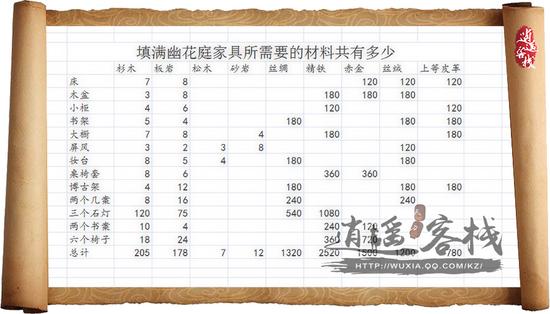 填满幽花庭家具所需要的材料共有多少
逍遥客栈
杉木 板岩 松木 砂岩 丝绸 精铁 赤金 丝绒 上等皮革
床 7 8 120 120 120
木盒 3 8 180 180 180
小柜 4 6 120 120
书架 5 4 180 180 180
大橱 7 8 4 180 180
屏风 3 2 3 8 120
妆台 8 5 4 180 180
桌椅套 8 6 360 360
博古架 4 12 180 180 180
两个几案 8 16 240 240
三个石灯 120 75 540 1080
两个书案 10 4 240 120
六个椅子 18 24 360 720
总计 205 178 7 12 1320 2520 1500 1200 780
逍遥客栈
HTTP://WUXIA.QQ.COM/KZ/